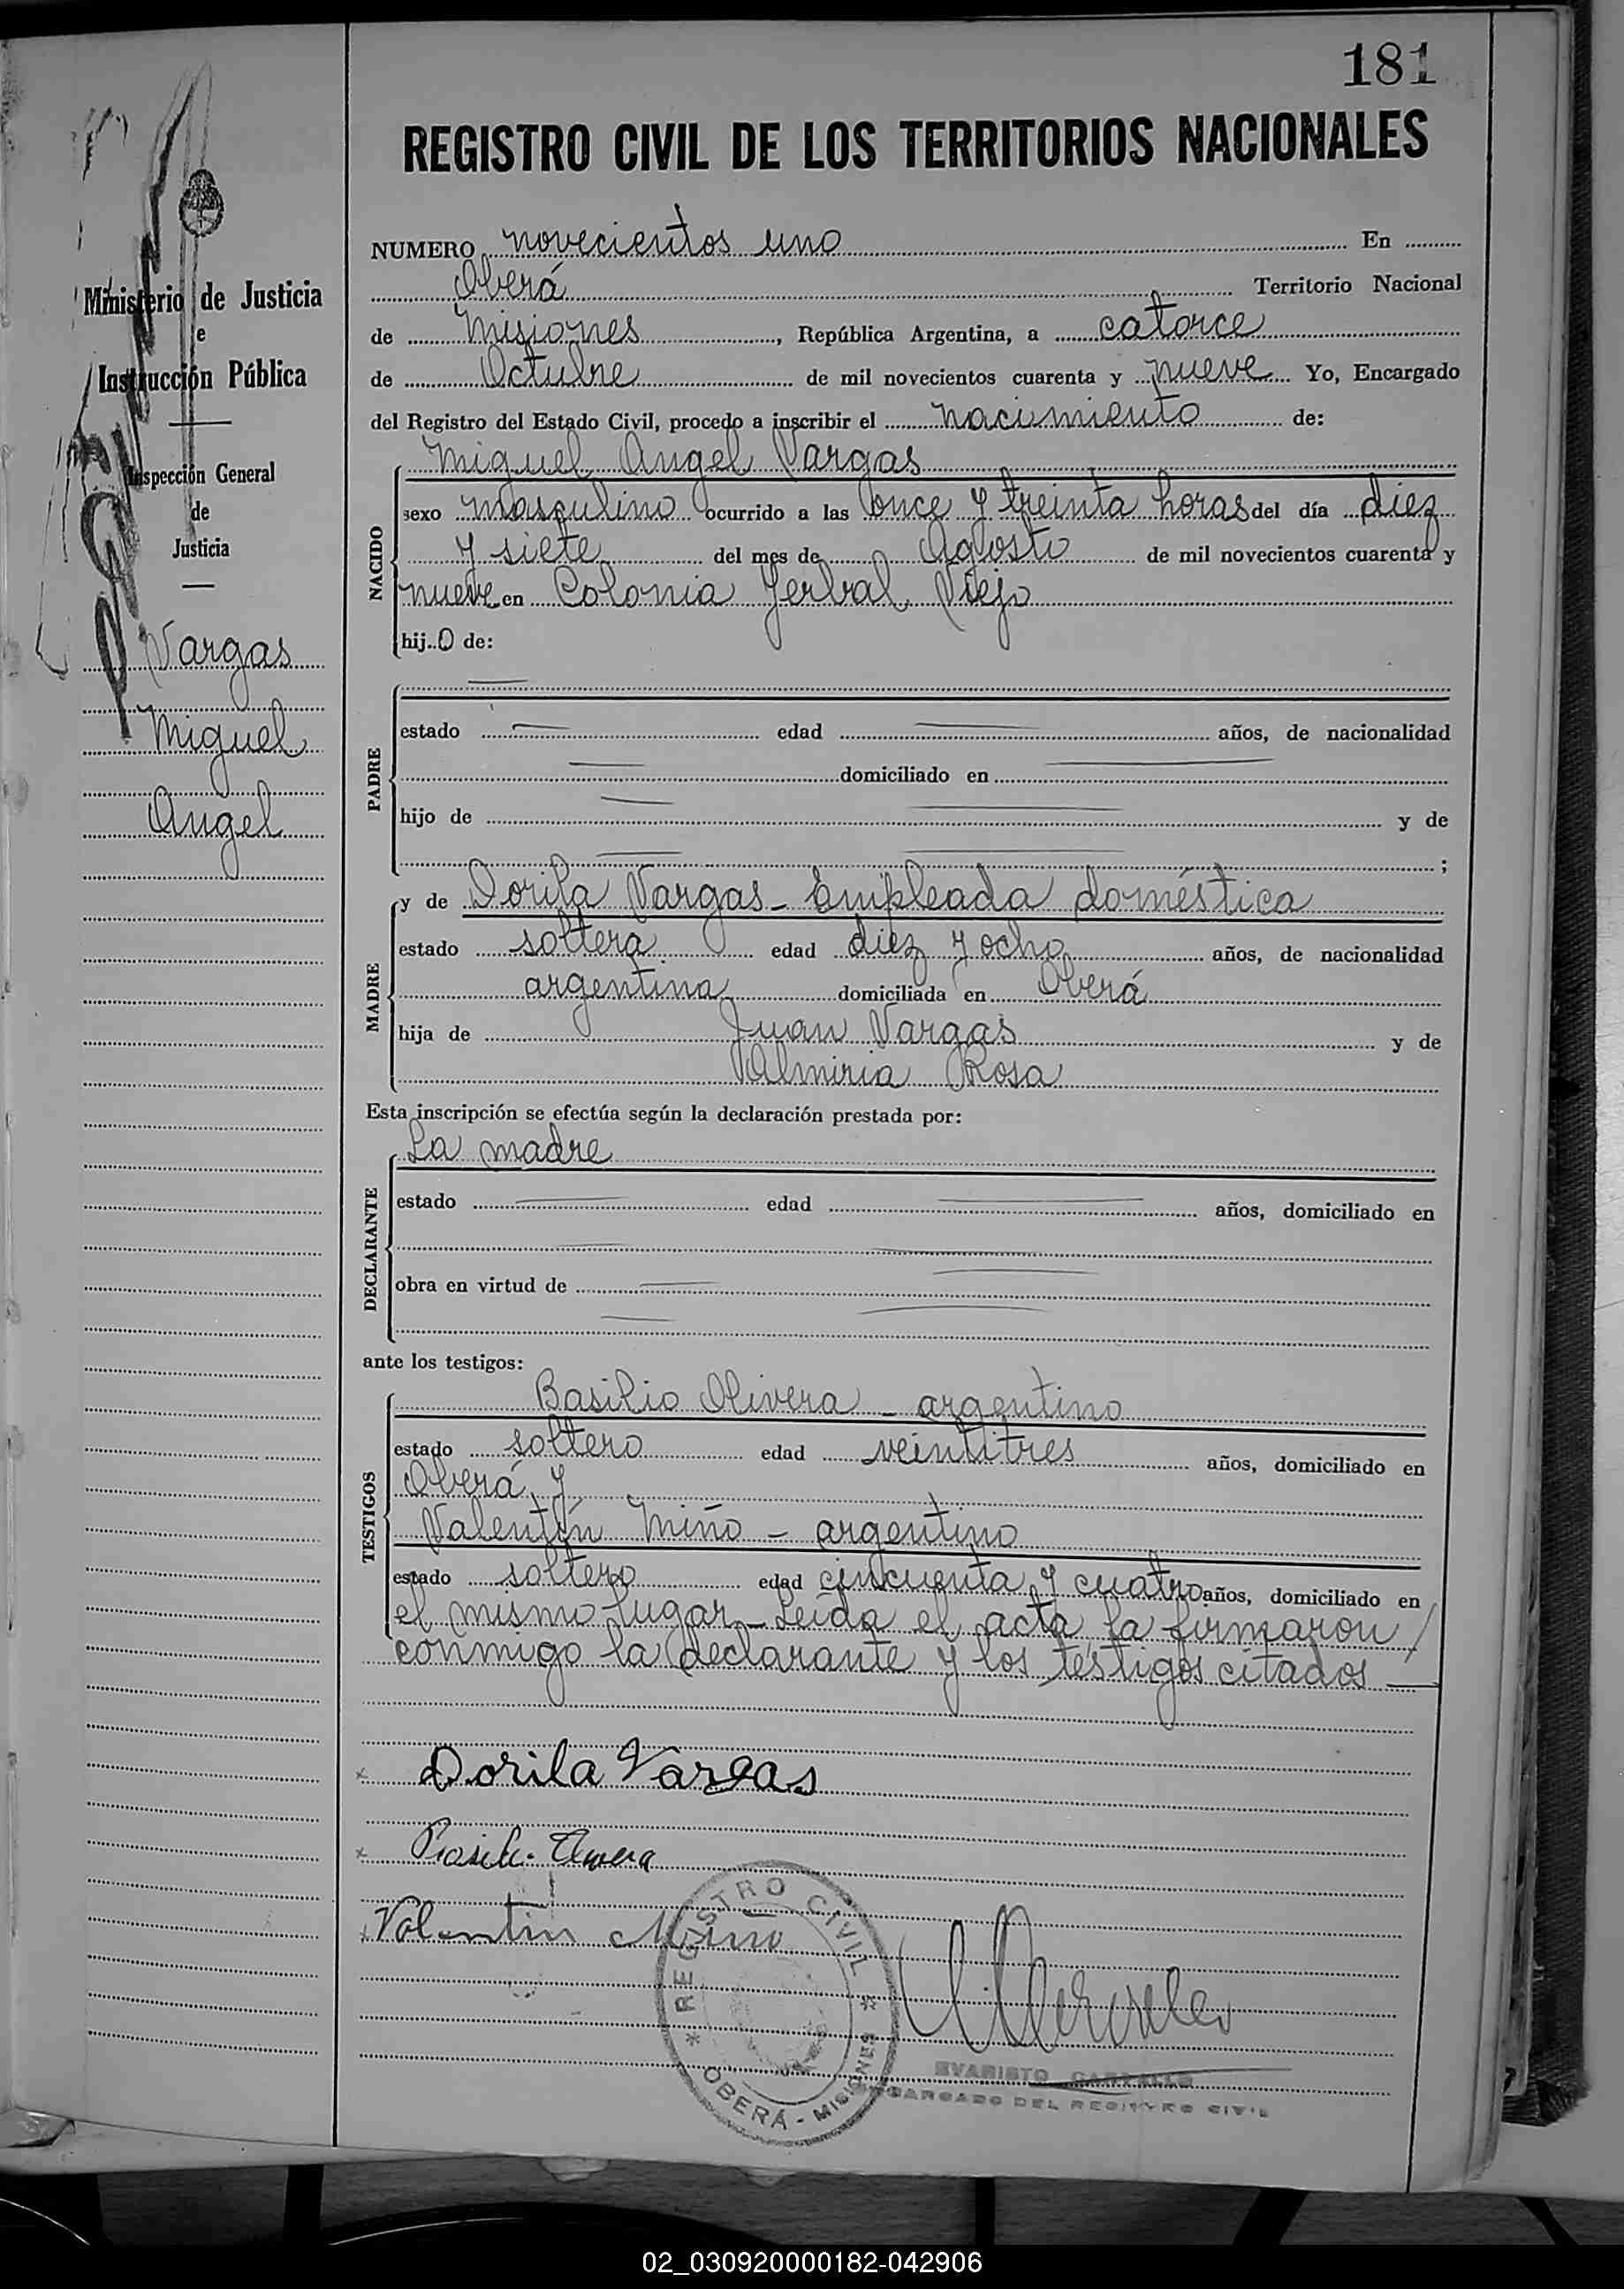 181
REGISTRO CIVIL DE LOS TERRITORIOS NACIONALES
Ministerio de Justicia
e
Instrucción Pública
Inspección General
de
Justicia
Vargas
Miguel
Angel
NUMERO novecientos uno En
Oberá Territorio Nacional
de Misiones, República Argentina, a catorce
de Octubre de mil novecientos cuarenta y nueve Yo, Encargado
del Registro del Estado Civil, procedo a inscribir el nacimiento de:
NACIDO
Miguel Angel Vargas
sexo masculino ocurrido a las once y treinta horas del día diez
y siete del mes de Agosto de mil novecientos cuarenta y
nueve en Colonia Yerbal Viejo
hijo de:
PADRE
estado — edad — años, de nacionalidad
— domiciliado en —
hijo de — y de
— ;
MADRE
y de Dorila Vargas - Empleada doméstica
estado soltera edad diez y ocho años, de nacionalidad
argentina domiciliada en Oberá
hija de Juan Vargas y de
Almiria Rosa
Esta inscripción se efectúa según la declaración prestada por:
DECLARANTE
La madre
estado — edad — años, domiciliado en
obra en virtud de —
ante los testigos:
TESTIGOS
Basilio Olivera - argentino
estado soltero edad veintitres años, domiciliado en
Oberá y
Valentín Miño - argentino
estado soltero edad cincuenta y cuatro años, domiciliado en
el mismo lugar - Leída el acta la firmaron
conmigo la declarante y los testigos citados —
x Dorila Vargas
x
Valentin Miño
REGISTRO CIVIL
OBERÁ - MISIONES
EVARISTO
ENCARGADO DEL REGISTRO CIVIL
02_030920000182-042906